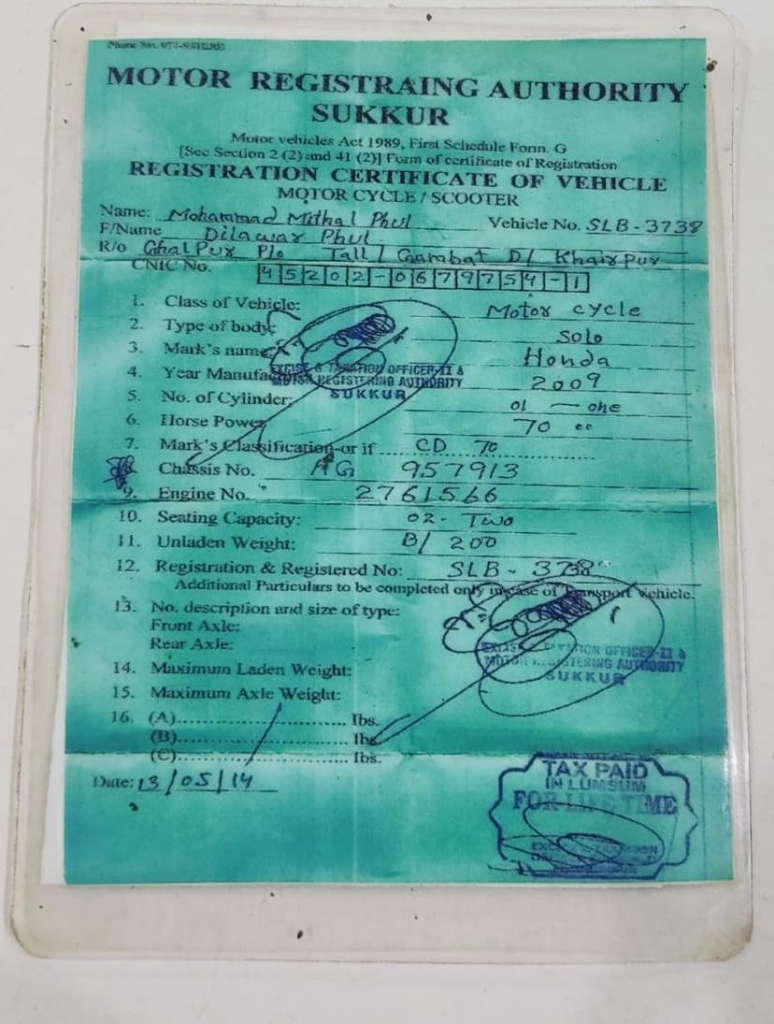 MOTOR REGISTRAING AUTHORITY
SUKKUR
Motor vehicles Act 1989, First Schedule Form. G
[See Section 2 (2) and 41 (2)] Form of certificate of Registration
REGISTRATION CERTIFICATE OF VEHICLE
MOTOR CYCLE / SCOOTER
Name: Mohammad Mithal Phul Vehicle No. SLB - 3738
F/Name Dilawar Phul
R/o Ghal Pur P/o Tall/ Gambat D/ Khairpur
CNIC No. 45202-0679754-1
1. Class of Vehicle: Motor cycle
2. Type of body: Solo
3. Mark's name Honda
4. Year Manufac 2009
EXCISE & TAXATION OFFICER-II &
MOTOR REGISTERING AUTHORITY
SUKKUR
5. No. of Cylinder: 01 - one
6. Horse Power 70 cc
7. Mark's Classification or if CD 70
8. Chassis No. AG 957913
9. Engine No. 2761566
10. Seating Capacity: 02- Two
11. Unladen Weight: B/ 200
12. Registration & Registered No: SLB - 3738
Additional Particulars to be completed only in case of Transport vehicle.
13. No. description and size of type:
Front Axle:
Rear Axle:
EXCISE TAXATION OFFICER-II &
MOTOR REGISTERING AUTHORITY
SUKKUR
14. Maximum Laden Weight:
15. Maximum Axle Weight:
16. (A)........................ Ibs.
(B)........................ Ibs.
(C)........................ Ibs.
Date: 13/05/14
TAX PAID
IN LUMSUM
FOR LIFE TIME